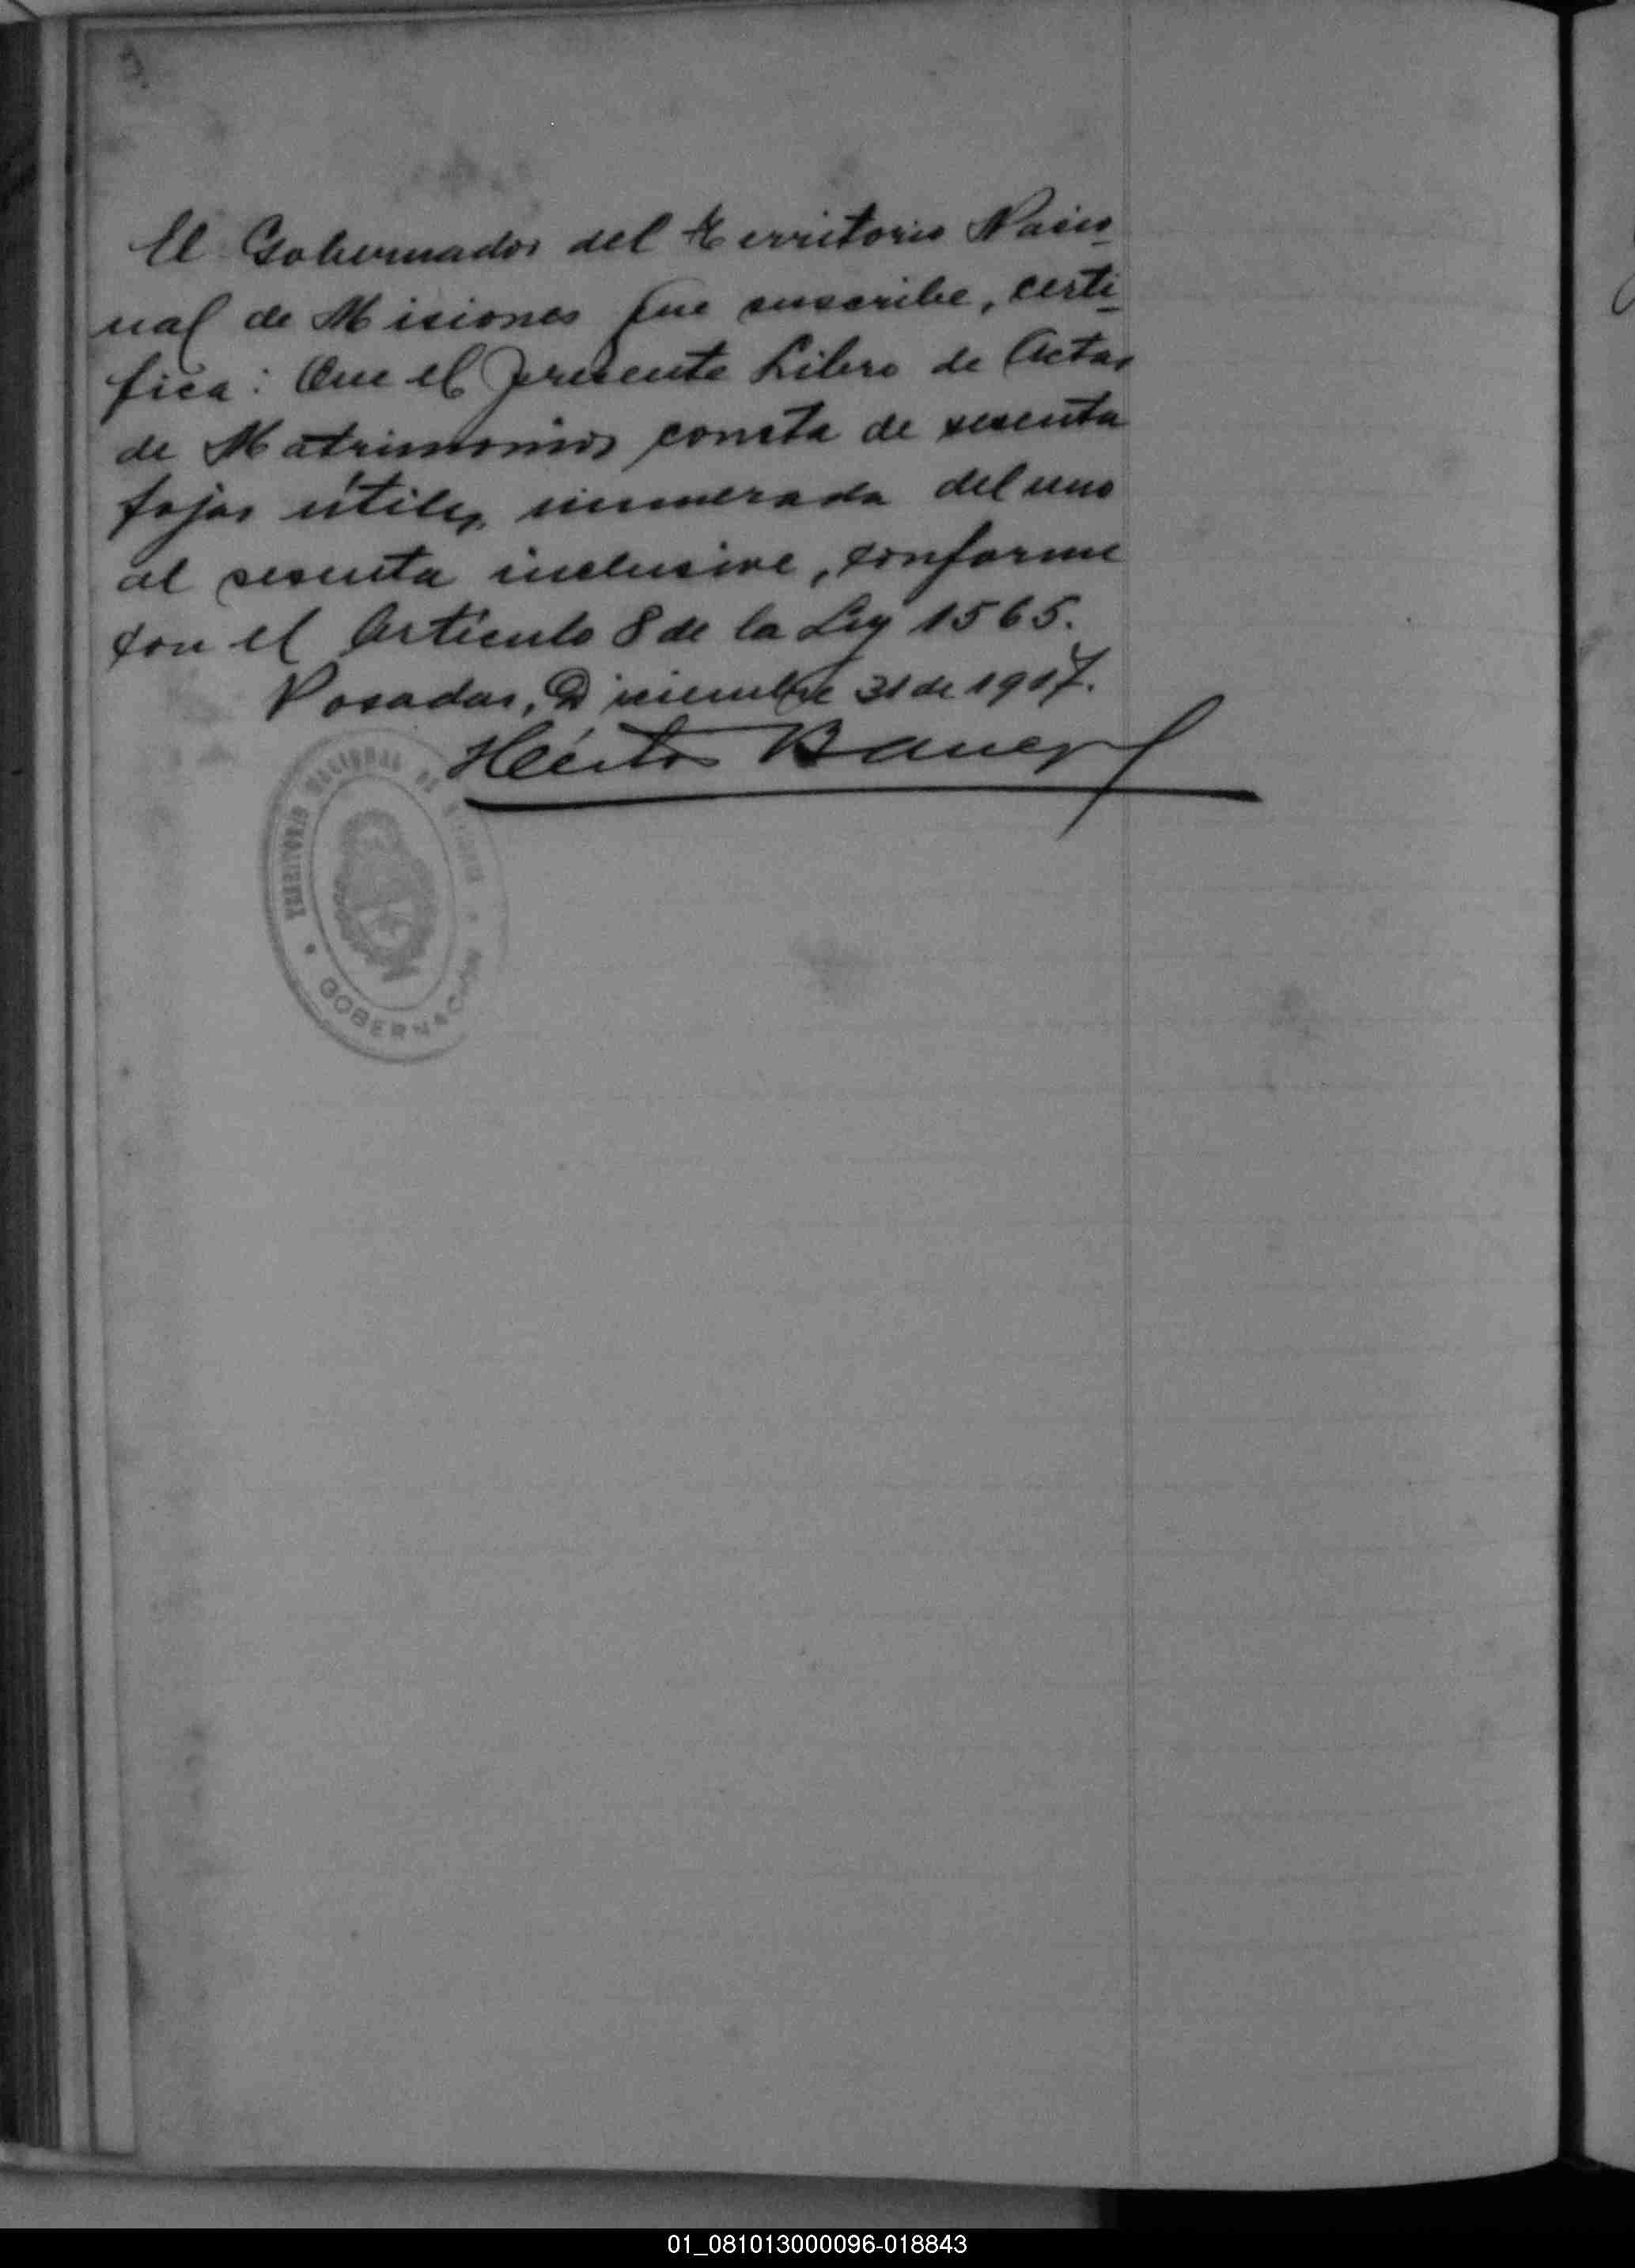 El Gobernador del Territorio Nacio-
nal de Misiones que suscribe, certi-
fica: Que el presente Libro de Actas
de Matrimonios consta de sesenta
fojas útiles, numerada del uno
al sesenta inclusive, conforme
con el Artículo 8 de la Ley 1565.
Posadas, Diciembre 31 de 1917.
Héctor Barreyro
TERRITORIO NACIONAL DE MISIONES
GOBERNACIÓN
01_081013000096-018843